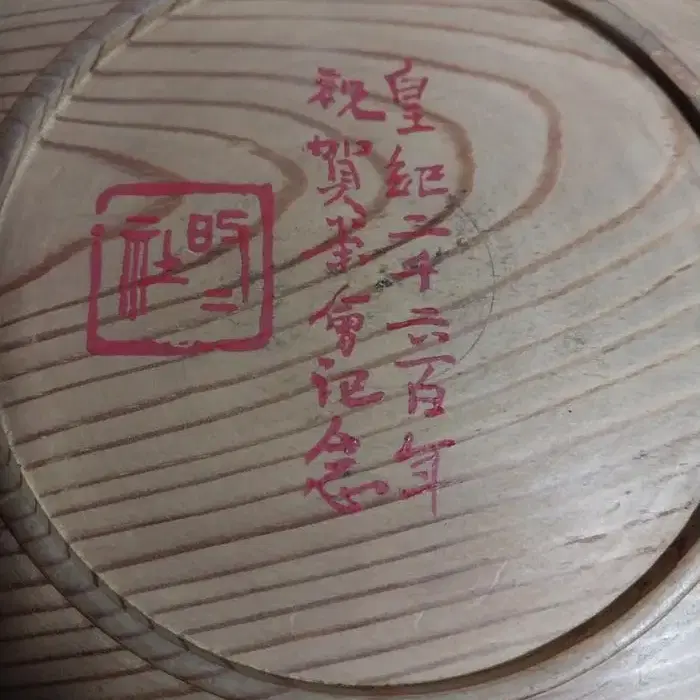 皇紀二千六百年
祝賀茶會記念